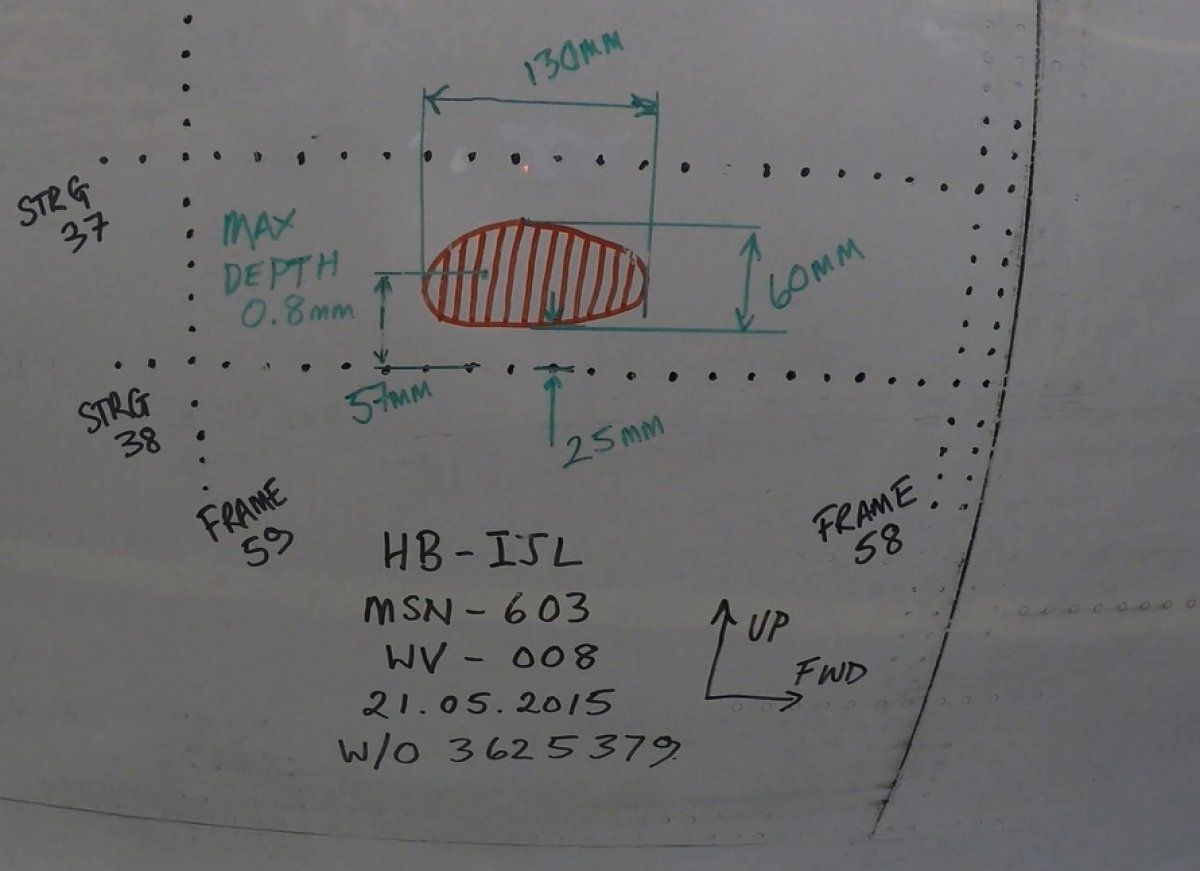 130mm
STRG
37
MAX
DEPTH
0.8mm
60MM
57mm
STRG
38
25mm
FRAME
59
FRAME
58
HB-IJL
MSN-603
WV-008
21.05.2015
W/O 3625379
UP
FWD